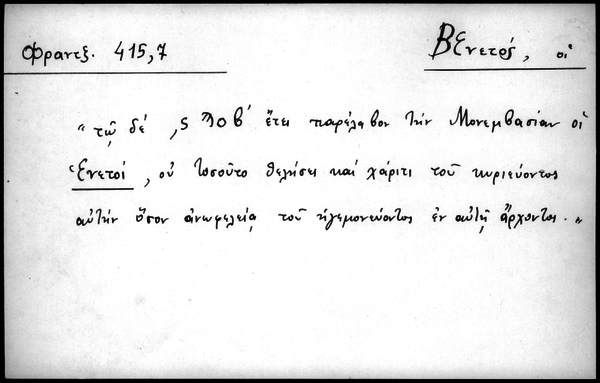 Φραντζ. 415,7
Βενετοί, οἱ
"τῷ δέ ,ςϠοβ' ἔτει παρέλαβον τήν Μονεμβασίαν οἱ
Ἐνετοί, οὐ τοσοῦτο θελήσει καί χάριτι τοῦ κυριεύοντος
αὐτήν ὅσον ἀνωφελείᾳ τοῦ ἡγεμονεύοντος ἐν αὐτῇ ἄρχοντος."